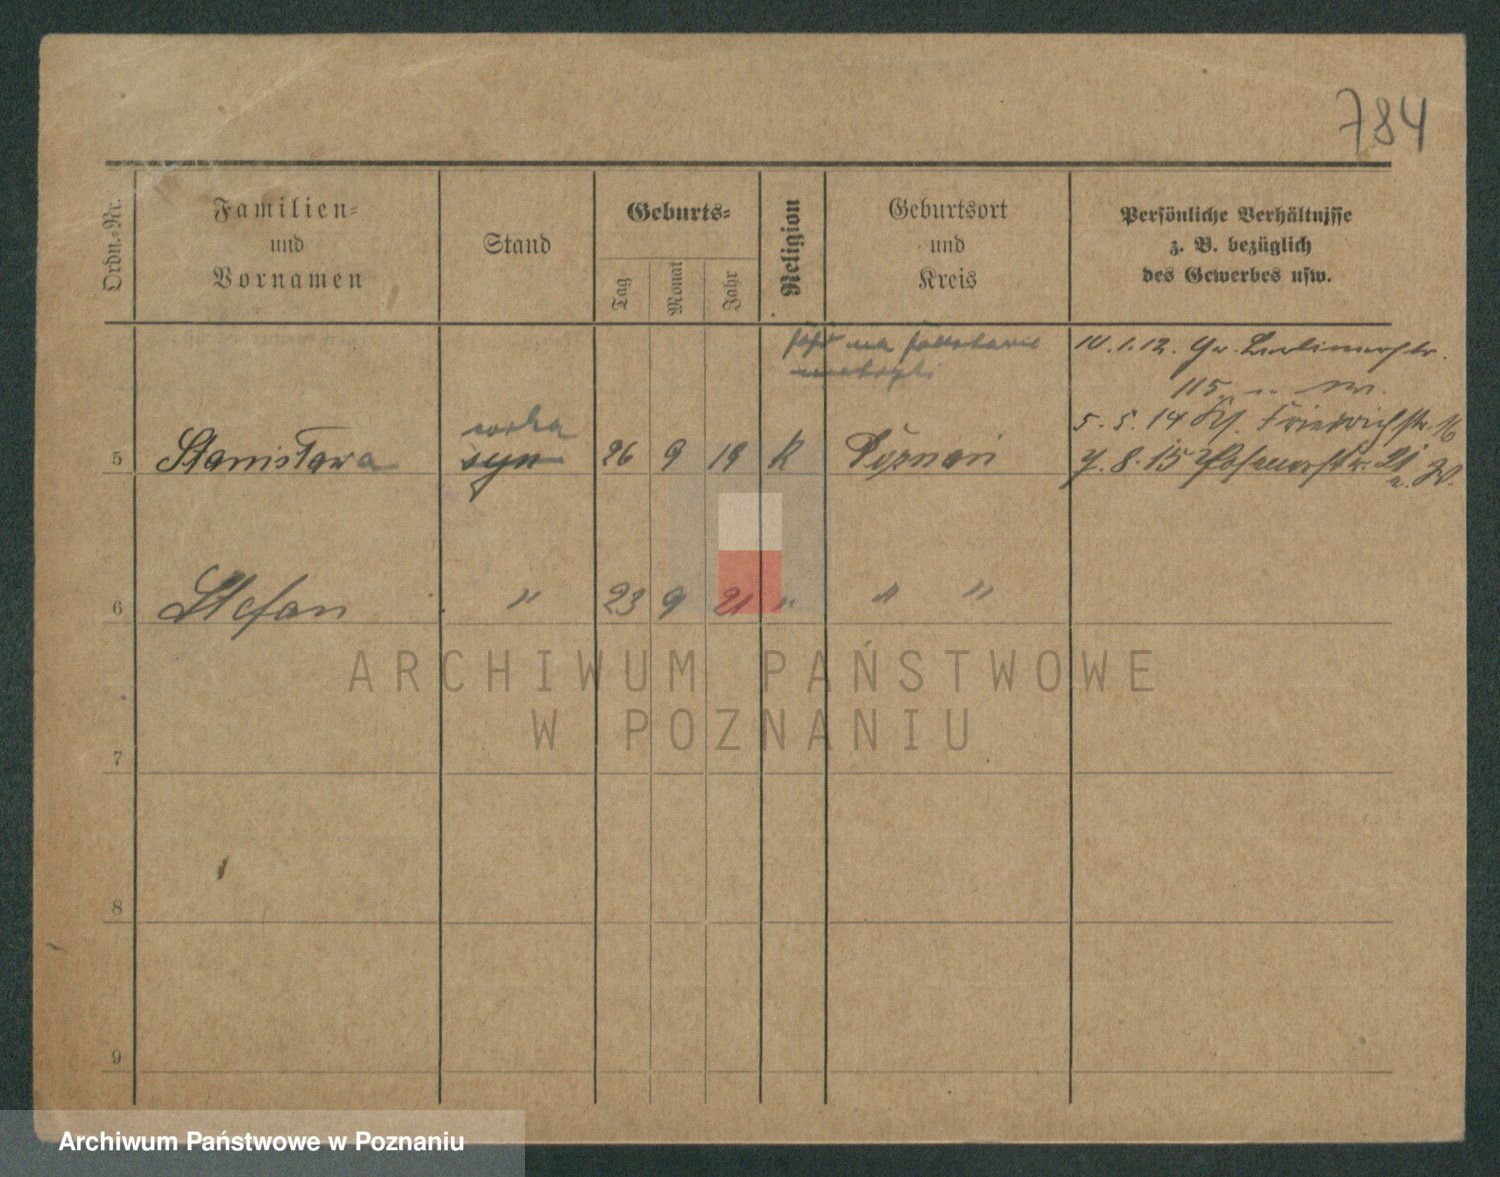 784
Ordn.-Nr.
Familien-
und
Vornamen
Stand
Geburts-
Tag
Monat
Jahr
Religion
Geburtsort
und
Kreis
Persönliche Verhältnisse
z. B. bezüglich
des Gewerbes usw.
na podstawie
10.1.12. Gr. Berlinerstr.
115
5.5.14 Kl. Friedrichstr. 16
córka
5 Stanisława syn 26 9 19 K Poznań 7.8.15 Posenerstr. 21
6 Stefan " 23 9 21 " " "
7
8
9
ARCHIWUM PAŃSTWOWE
W POZNANIU
Archiwum Państwowe w Poznaniu